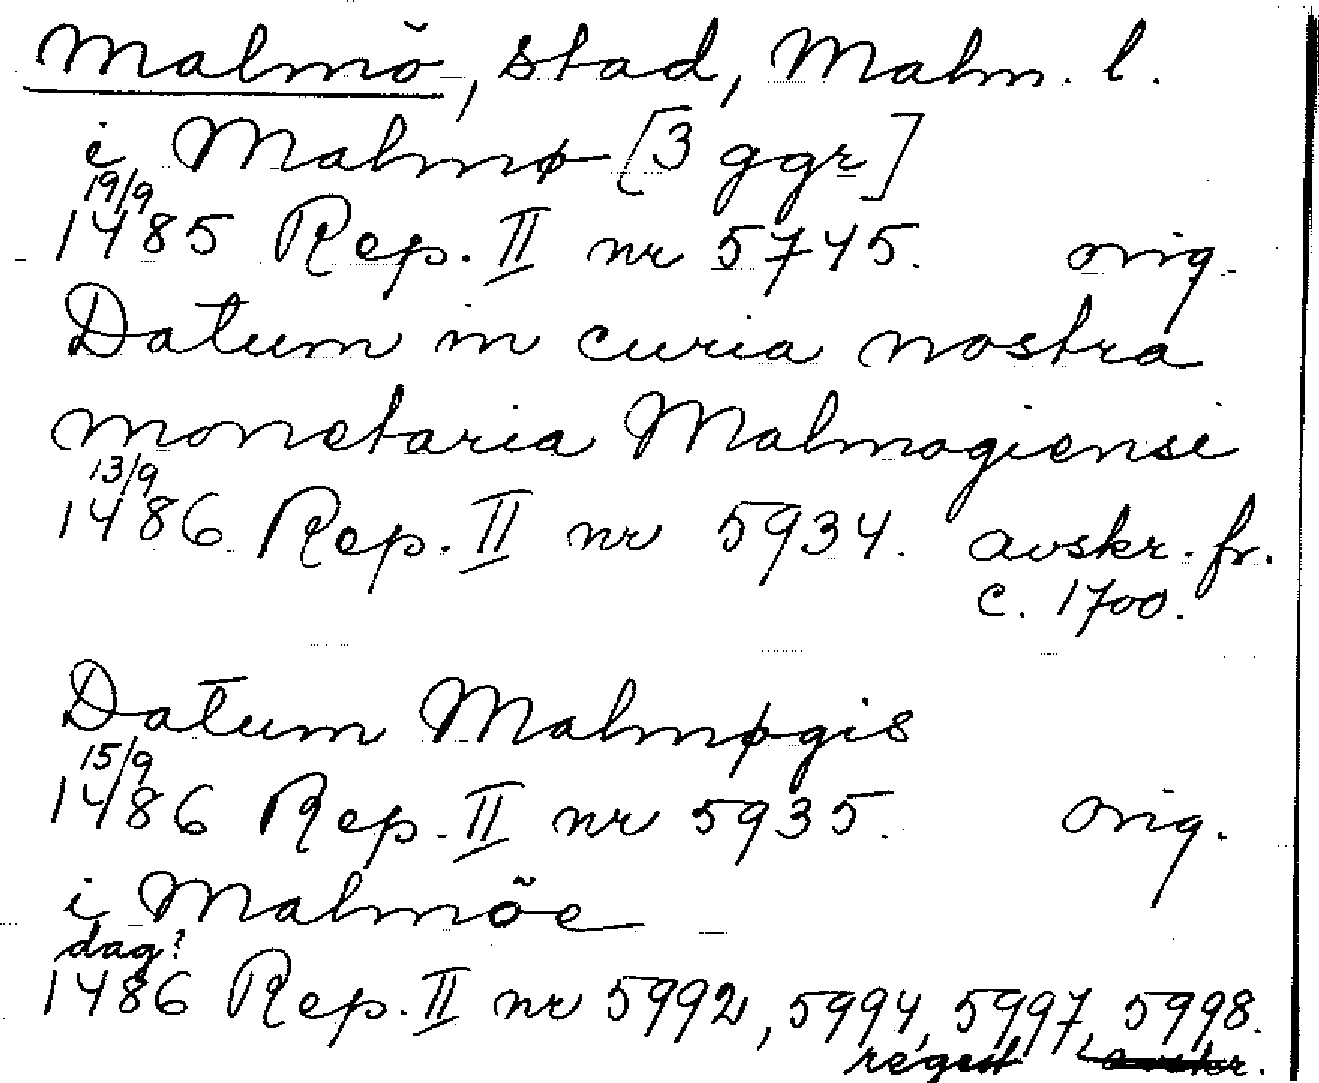 Malmö, stad, Malm. l.
i Malmø [3 ggr]
19/9
1485 Rep. II nr 5745. orig.
Datum in curia nostra
monetaria Malmogiensi
13/9
1486 Rep. II nr 5934. avskr. fr.
c. 1700.
Datum Malmøgis
15/9
1486 Rep. II nr 5935. orig.
i Malmöe
dag?
1486 Rep. II nr 5992, 5994, 5997, 5998.
regest avskr.